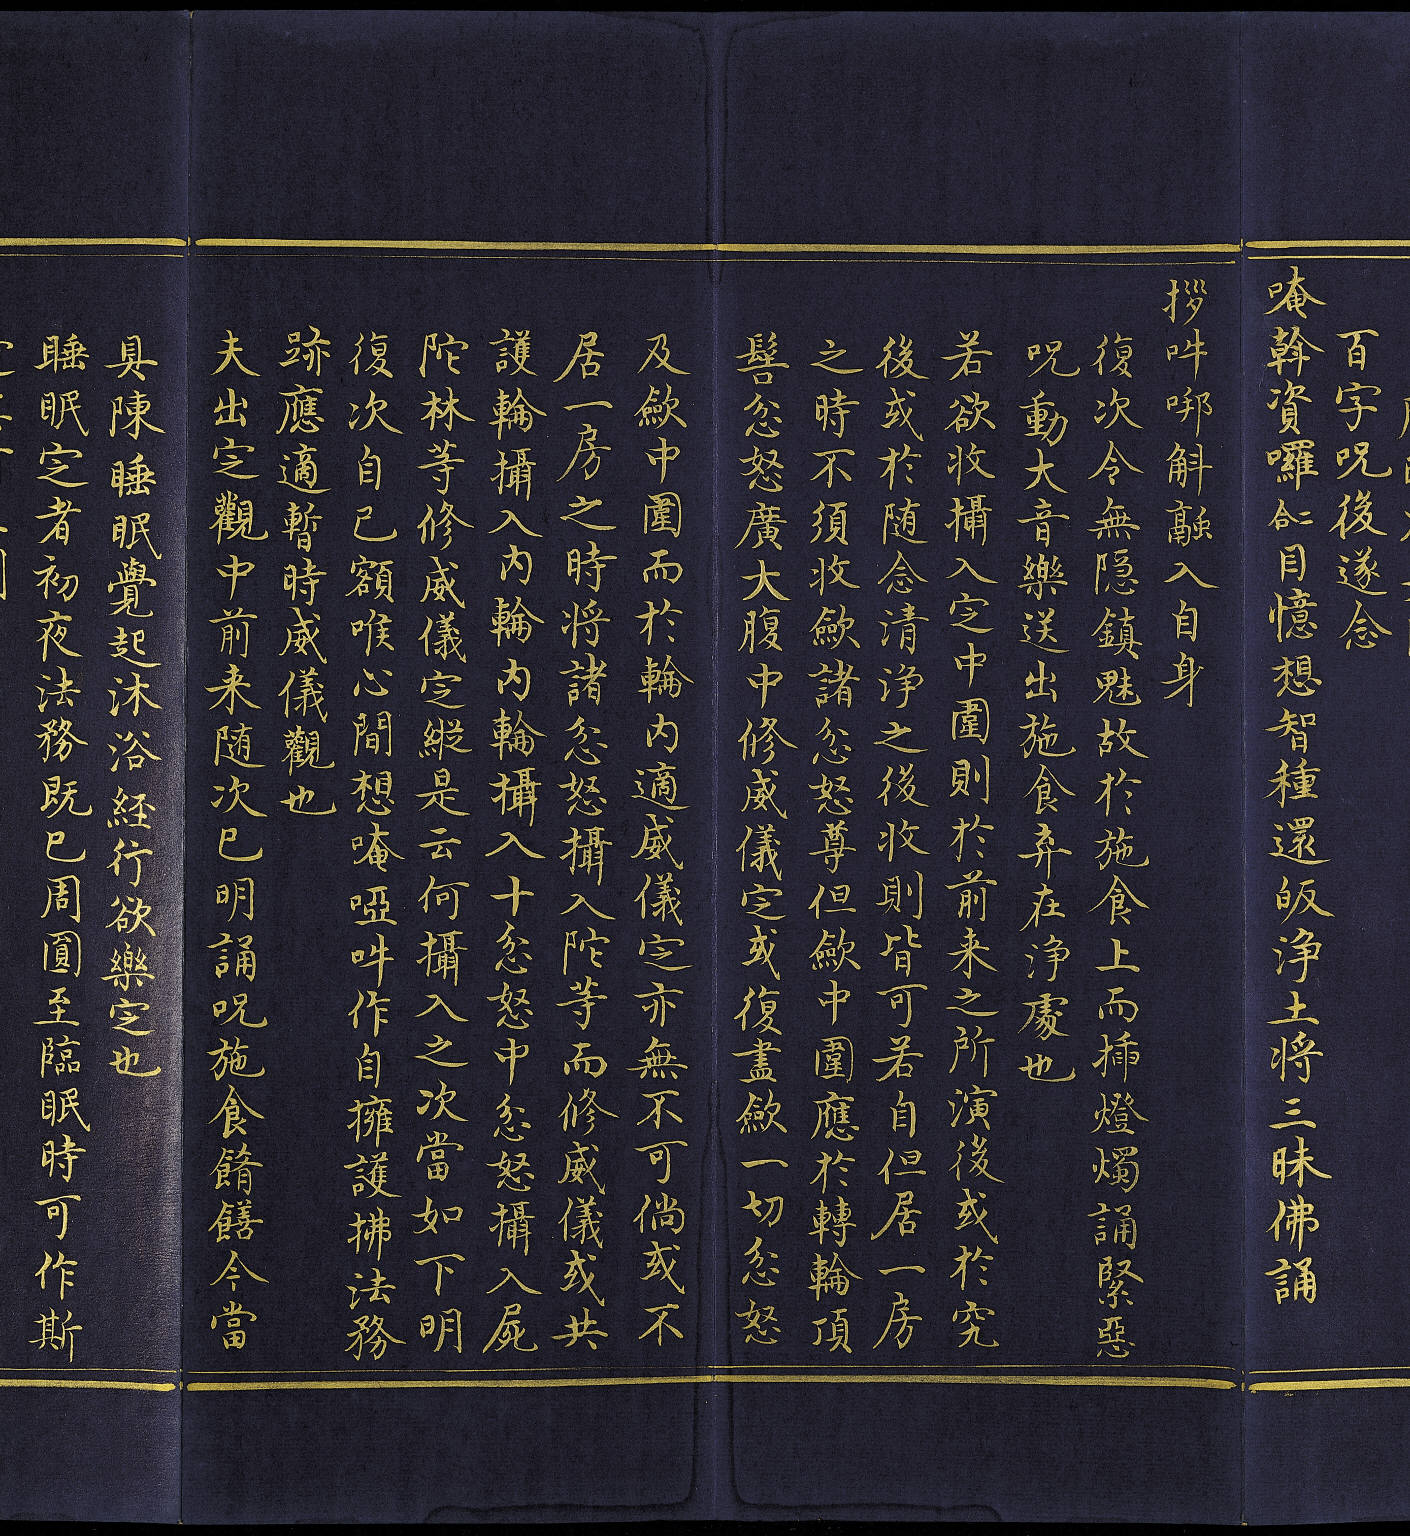 百字呪後遂念
唵斡資囉合仁目憶想智種還皈浄土将三昧佛誦
拶吽㖿斛融入自身
復次令無隠鎮魅故於施食上而揷燈燭誦緊惡
呪動大音樂送出施食弃在浄處也
若欲收攝入定中圍則於前来之所演後或於究
後或於随念清浄之後收則皆可若自但居一房
之時不須收歛諸忿怒尊但歛中圍應於轉輪頂
髻忿怒廣大腹中修威儀定或復盡歛一切忿怒
及歛中圍而於輪内適威儀定亦無不可倘或不
居一房之時将諸忿怒攝入陀等而修威儀或共
護輪攝入内輪内輪攝入十忿怒中忿怒攝入屍
陀林等修威儀定縱是云何攝入之次當如下明
復次自已額喉心間想唵啞吽作自擁護拂法務
跡應適暫時威儀觀也
夫出定觀中前来随次已明誦呪施食餚饍今當
具陳睡眠覺起沐浴經行欲樂定也
睡眠定者初夜法務既已周圓至臨眠時可作斯